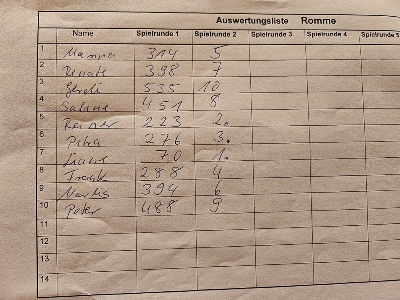 Auswertungsliste Romme
Name Spielrunde 1 Spielrunde 2 Spielrunde 3 Spielrunde 4 Spielrunde 5
1 314 5
2 Renate 398 7
3 535 10
4 Sabine 451 8
5 Reiner 223 2.
6 Petra 276 3.
7 70 1.
8 Frank 288 4
9 394 6
10 Peter 488 9
11
12
13
14